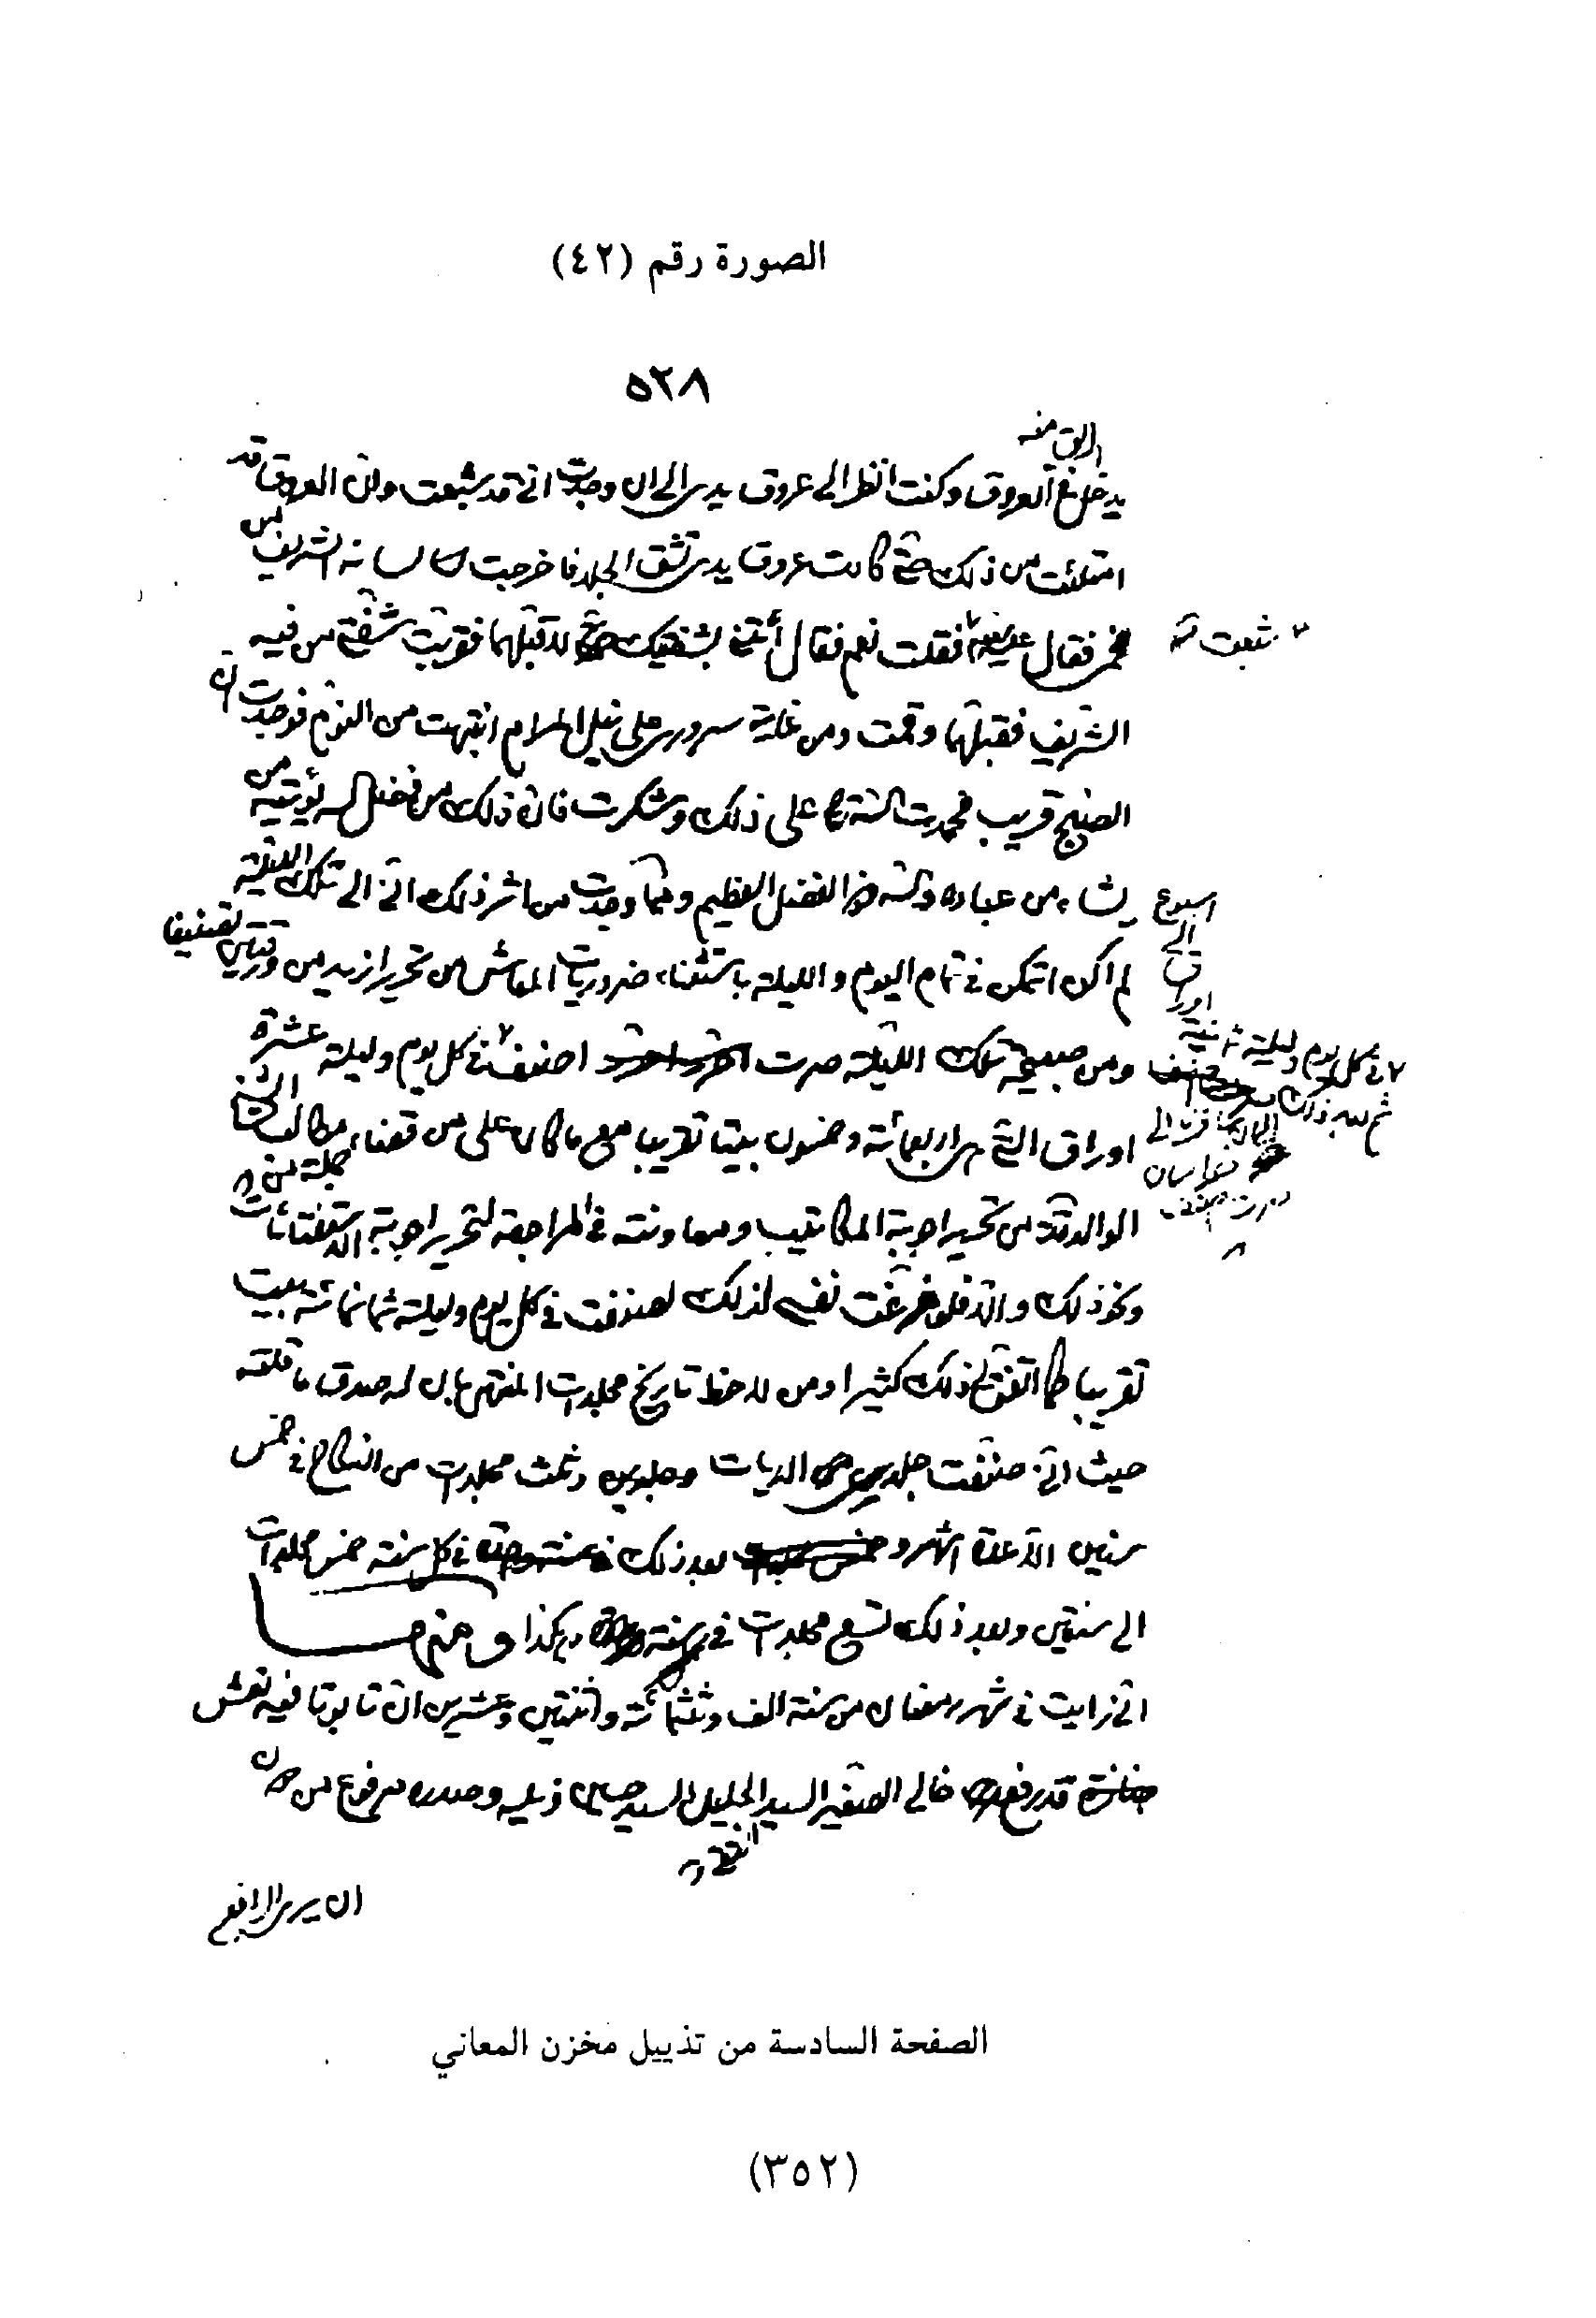 الصورة رقم (٤٢)
٥٢٨
الريق منه
يدخل في العروق وكنت انظر الى عروق يدي الى ان وجدت اني قد شبعت وان العروق قد
امتلئت من ذلك حتى كادت عروق يدي تشق الجلد فاخرجت لسانه الشريف من
فمي فقال شبعت فقلت نعم فقال ائتني بشفتيك لاقبلهما فقربت شفتي من فيه
شبعت
الشريف فقبلها وقمت ومن غاية سروري على نيل المرام انتبهت من النوم فوجدت ان
الصبح قريب فحمدت الله على ذلك وشكرت فان ذلك من فضل الله يؤتيه من
يشاء من عباده والله ذو الفضل العظيم ومما وجدت من اثر ذلك اني الى تلك الليلة
لم اكن اتمكن في تمام اليوم والليلة باستثناء ضروريات المعاش من تحرير ازيد من ورقتين تصنيفا
ومن صبيحة تلك الليلة صرت اصنف في كل يوم وليلة عشرة
اسبوع
الى
اوراق
في كل يوم وليلة ثمانية
ثم بعد ذلك
اوراق التي هي اربعمائة وخمسون بيتا تقريبا مع ما كان علي من قضاء مطالب
جملة من
الوالد قده من تحرير اجوبة المكاتيب ومعاونته في المراجعة لتحرير اجوبة الاستفتائات
ونحو ذلك والا فلو فرغت نفسي لذلك لصنفت في كل يوم وليلة ثمانمائة بيت
تقريبا كما اتفق لي ذلك كثيرا ومن لاحظ تاريخ مجلدات المنتهى بان له صدق ما قلته
حيث اني صنفت جلدي الديات ومجلدين وثلث مجلدات من النكاح في خمس
سنين الا عدة اشهر وبعد ذلك في كل سنة خمس مجلدات
الى سنتين وبعد ذلك تسع مجلدات في سنة وهكذا ومنها
اني رايت في شهر رمضان من سنة الف وثلثمائة واثنتين وعشرين ان تابوتا فيه نعش
جنازة قد رفع خالي الصغير السيد الجليل السيد حسين ذيله وصدره مرفوع من دون
ان يرى الرافع
الصفحة السادسة من تذييل مخزن المعاني
(٣٥٢)